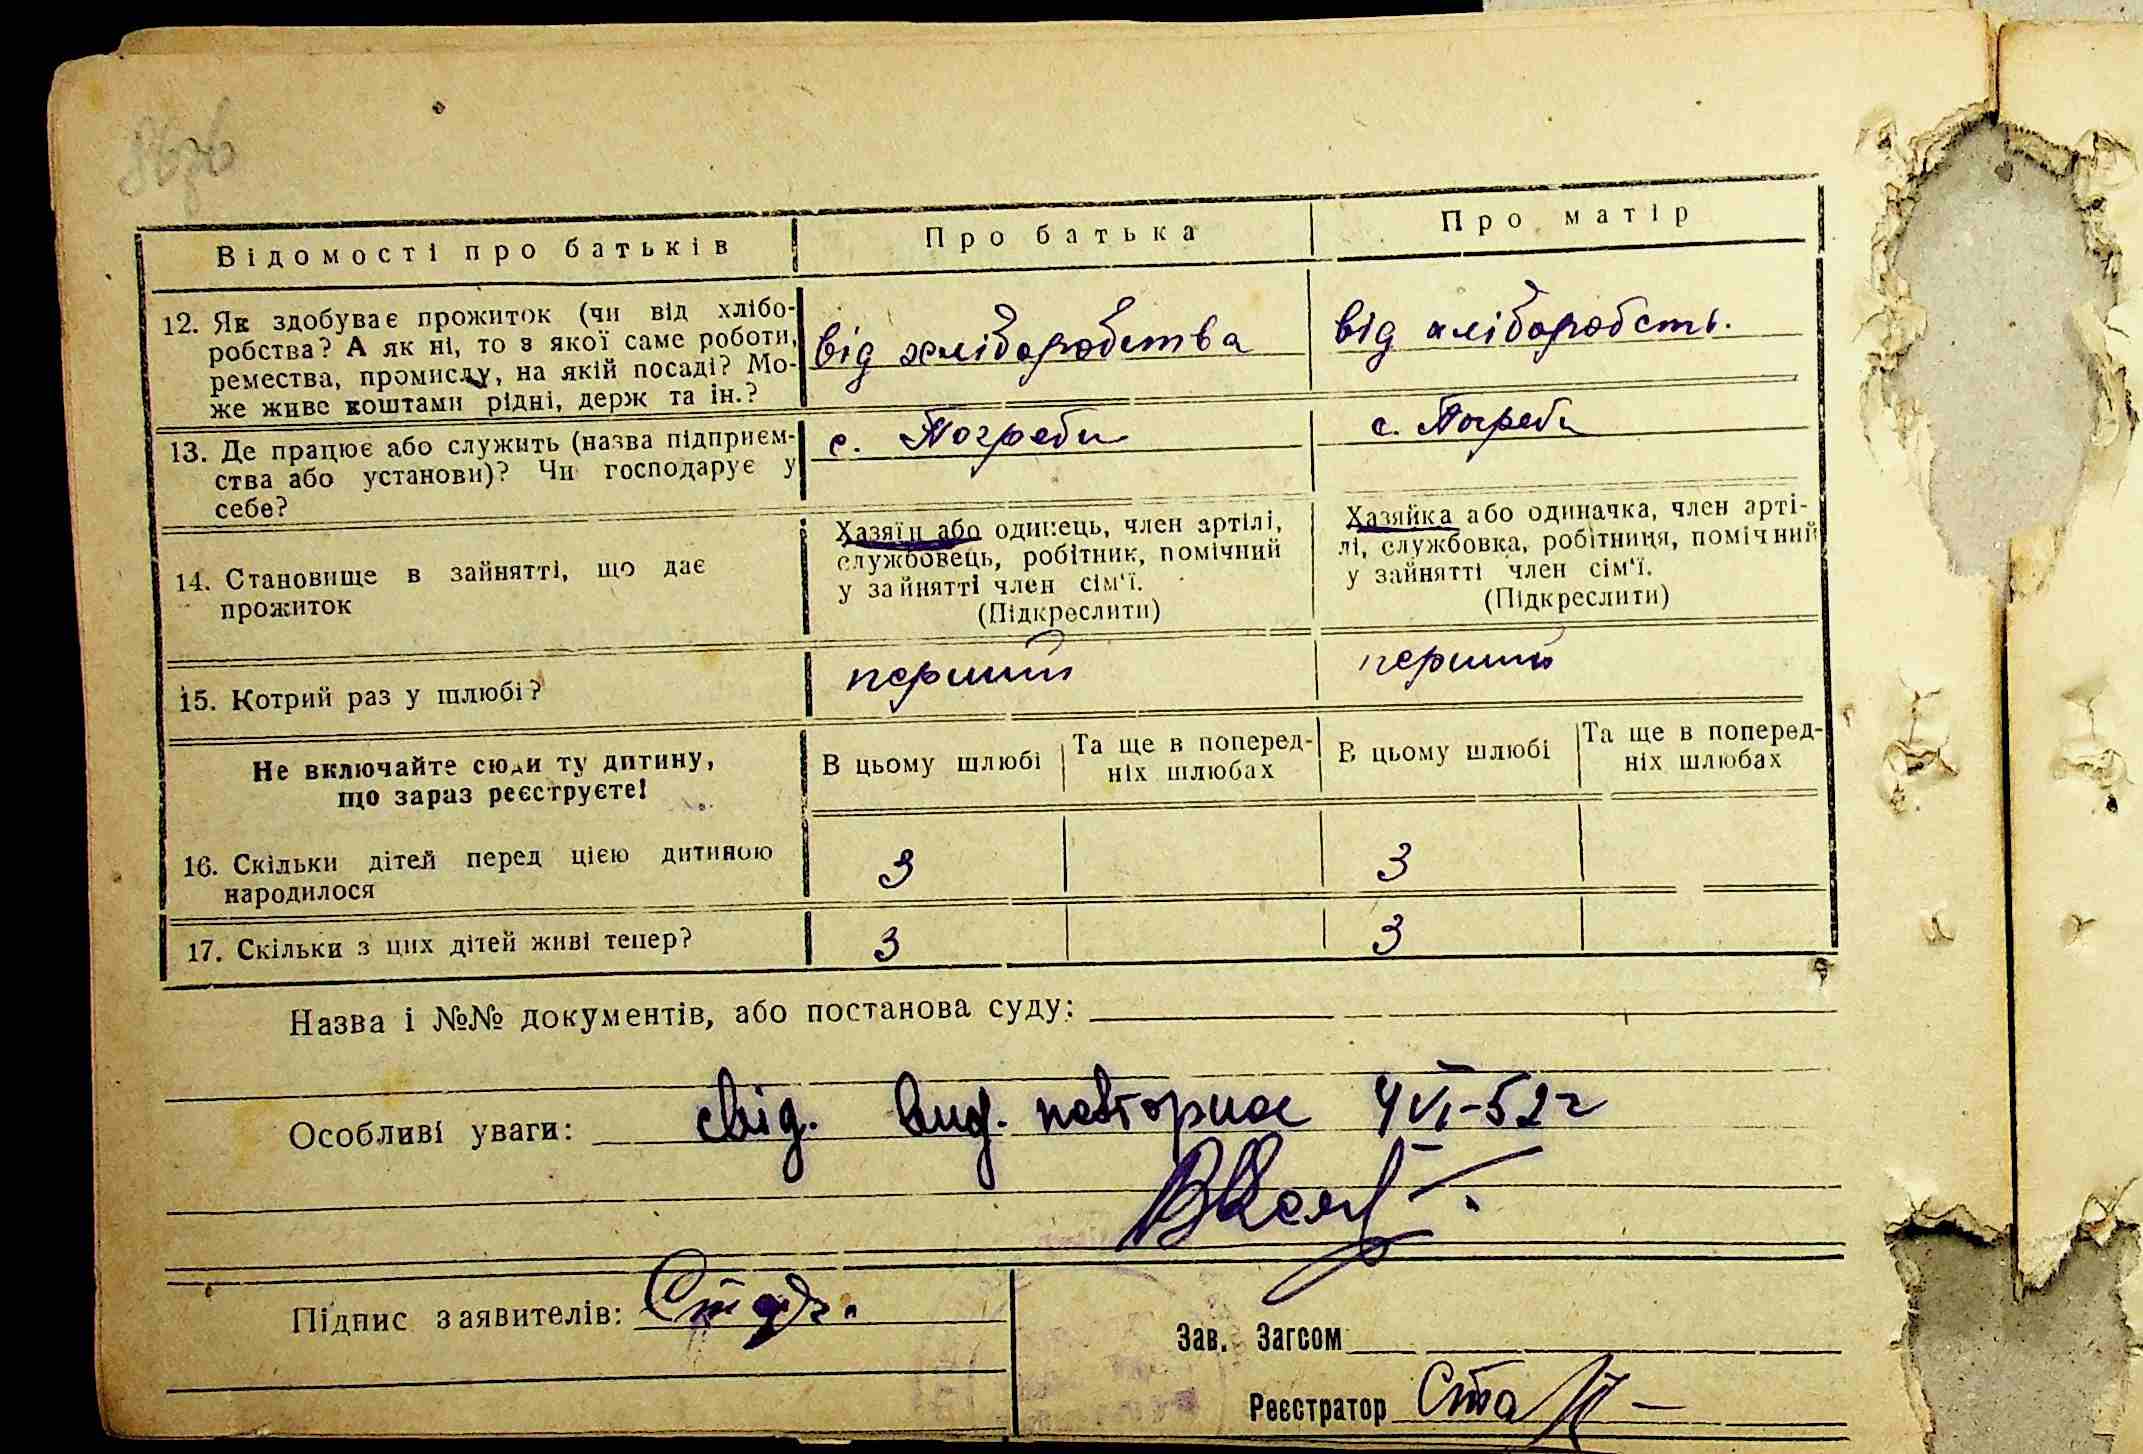 Відомості про батьків Про батька Про матір
12. Як здобуває прожиток (чи від хлібо-
робства? А як ні, то з якої саме роботи,
ремества, промислу, на якій посаді? Мо-
же живе коштами рідні, держ та ін.?
від хліборобства від хліборобсть.
13. Де працює або служить (назва підприєм-
ства або установи)? Чи господарує у
себе?
с. Погреби с. Погреби
14. Становище в зайнятті, що дає
прожиток
Хазяїн або одинець, член артілі,
службовець, робітник, помічний
у зайнятті член сім'ї.
(Підкреслити)
Хазяйка або одиначка, член арті-
лі, службовка, робітниця, помічний
у зайнятті член сім'ї.
(Підкреслити)
15. Котрий раз у шлюбі? перший перший
Не включайте сюди ту дитину,
що зараз реєструєте!
В цьому шлюбі Та ще в поперед-
ніх шлюбах
В цьому шлюбі Та ще в поперед-
ніх шлюбах
16. Скільки дітей перед цією дитиною
народилося
3 3
17. Скільки з цих дітей живі тепер? 3 3
Назва і №№ документів, або постанова суду:
Особливі уваги: свід. вид. повторна 4 VI-52 г
Підпис заявителів:
Зав. Загсом
Реєстратор